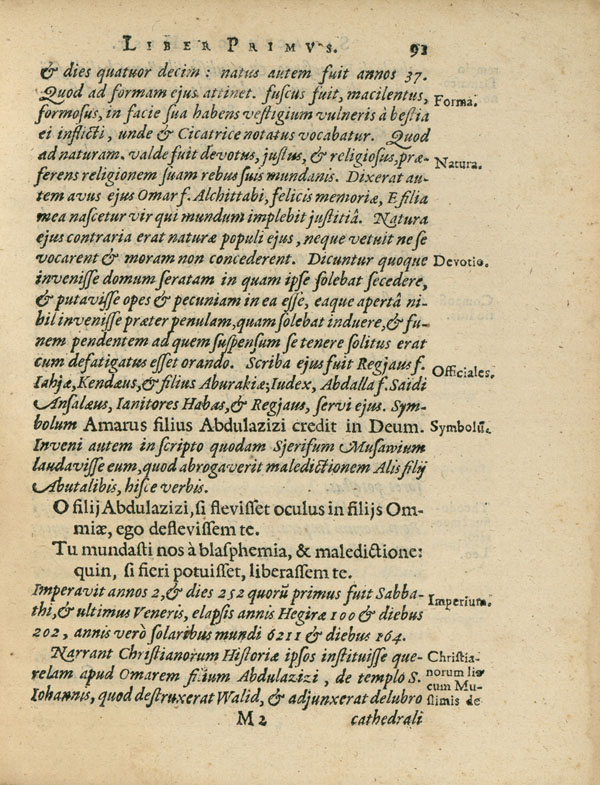 LIBER PRIMVS. 93
& dies quatuor decim : natus autem fuit annos 37.
Quod ad formam ejus attinet. fuscus fuit, macilentus,
Forma.
formosus, in facie sua habens vestigium vulneris à bestia
ei inflicti, unde & Cicatrice notatus vocabatur. Quod
ad naturam. valde fuit devotus, justus, & religiosus, præ-
Natura.
ferens religionem suam rebus suis mundanis. Dixerat au-
tem avus ejus Omar f. Alchittabi, felicis memoriæ, E filia
mea nascetur vir qui mundum implebit justitiâ. Natura
ejus contraria erat naturæ populi ejus, neque vetuit ne se
vocarent & moram non concederent. Dicuntur quoque
Devotio.
invenisse domum seratam in quam ipse solebat secedere,
& putavisse opes & pecuniam in ea esse, eaque apertâ ni-
hil invenisse præter penulam, quam solebat induere, & fu-
nem pendentem ad quem suspensum se tenere solitus erat
cum defatigatus esset orando. Scriba ejus fuit Regjaus f.
Officiales.
Iahjæ, Kendæus, & filius Aburakiæ; Iudex, Abdalla f. Saidi
Ansalæus, Ianitores Habas, & Regjaus, servi ejus. Sym-
bolum Amarus filius Abdulazizi credit in Deum.
Symbolũ.
Inveni autem in scripto quodam Sjerifum Musawium
laudavisse eum, quod abrogaverit maledictionem Alis filij
Abutalibis, hisce verbis.
O filij Abdulazizi, si flevisset oculus in filijs Om-
miæ, ego deflevissem te.
Tu mundasti nos à blasphemia, & maledictione:
quin, si fieri potuisset, liberassem te.
Imperavit annos 2, & dies 252 quorũ primus fuit Sabba-
Imperium.
thi, & ultimus Veneris, elapsis annis Hegiræ 100 & diebus
202, annis verò solaribus mundi 6211 & diebus 164.
Narrant Christianorum Historiæ ipsos instituisse que-
Christia-
relam apud Omarem filium Abdulazizi, de templo S.
norum lis
cum Mu-
Iohannis, quod destruxerat Walid, & adjunxerat delubro
slimis de
M 2 cathedrali